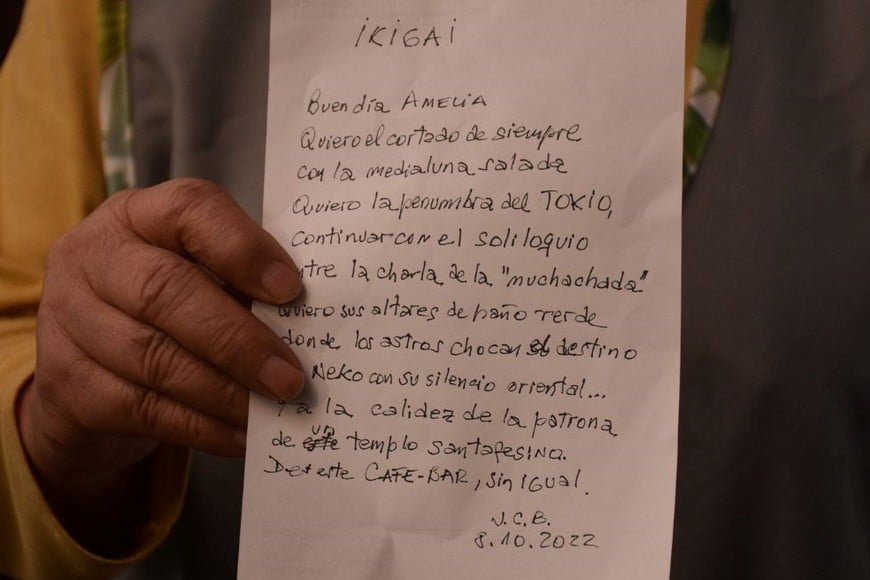 iKiGAi
Buen día AMELiA
Quiero el cortado de siempre
con la medialuna salada
Quiero la penumbra del TOKIO,
continuar con el soliloquio
ntre la charla de la "muchachada"
Quiero sus altares de paño verde
donde los astros chocan destino
NEKO con su silencio oriental...
y a la calidez de la patrona
de un templo santafesino.
De este CAFE-BAR, sin IGUAL.
J.C.B.
8.10.2022